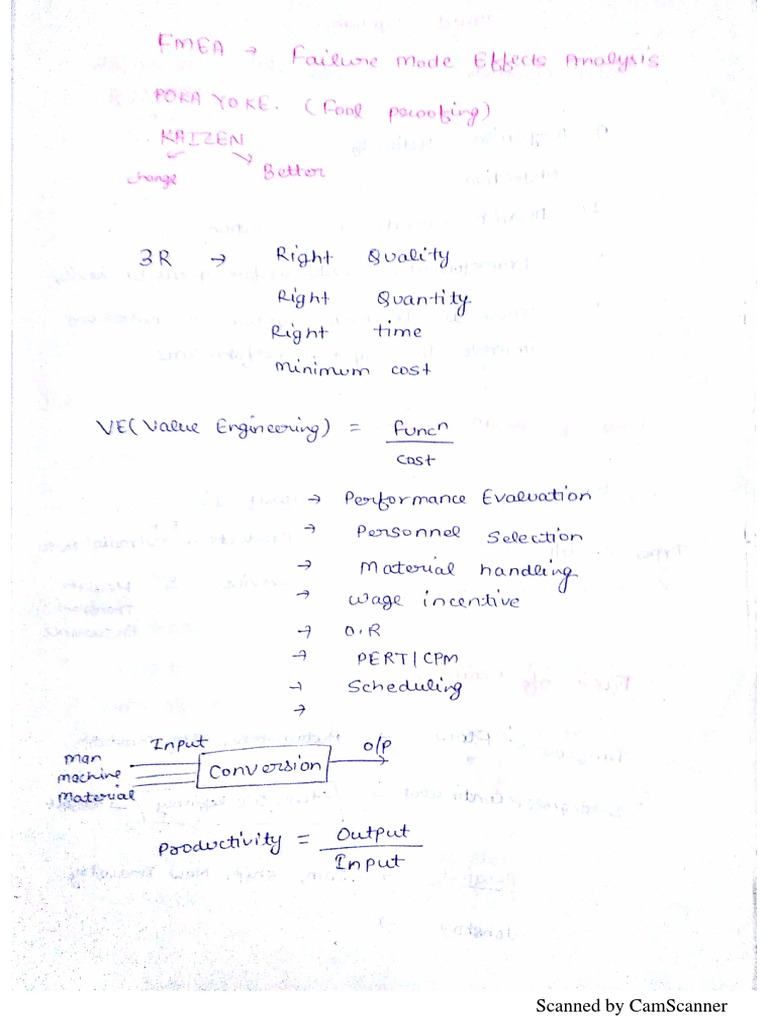 FMEA → Failure Mode Effects Analysis
POKA YOKE. (Fool proofing)
KAIZEN
change Better
3R → Right Quality
Right Quantity
Right time
minimum cost
VE (Value Engineering) = Funcⁿ
cost
→ Performance Evaluation
→ Personnel Selection
→ Material handling
→ wage incentive
→ O.R
→ PERT/CPM
→ Scheduling
→
Input O/P
man
machine Conversion
Material
Productivity = Output
Input
Scanned by CamScanner